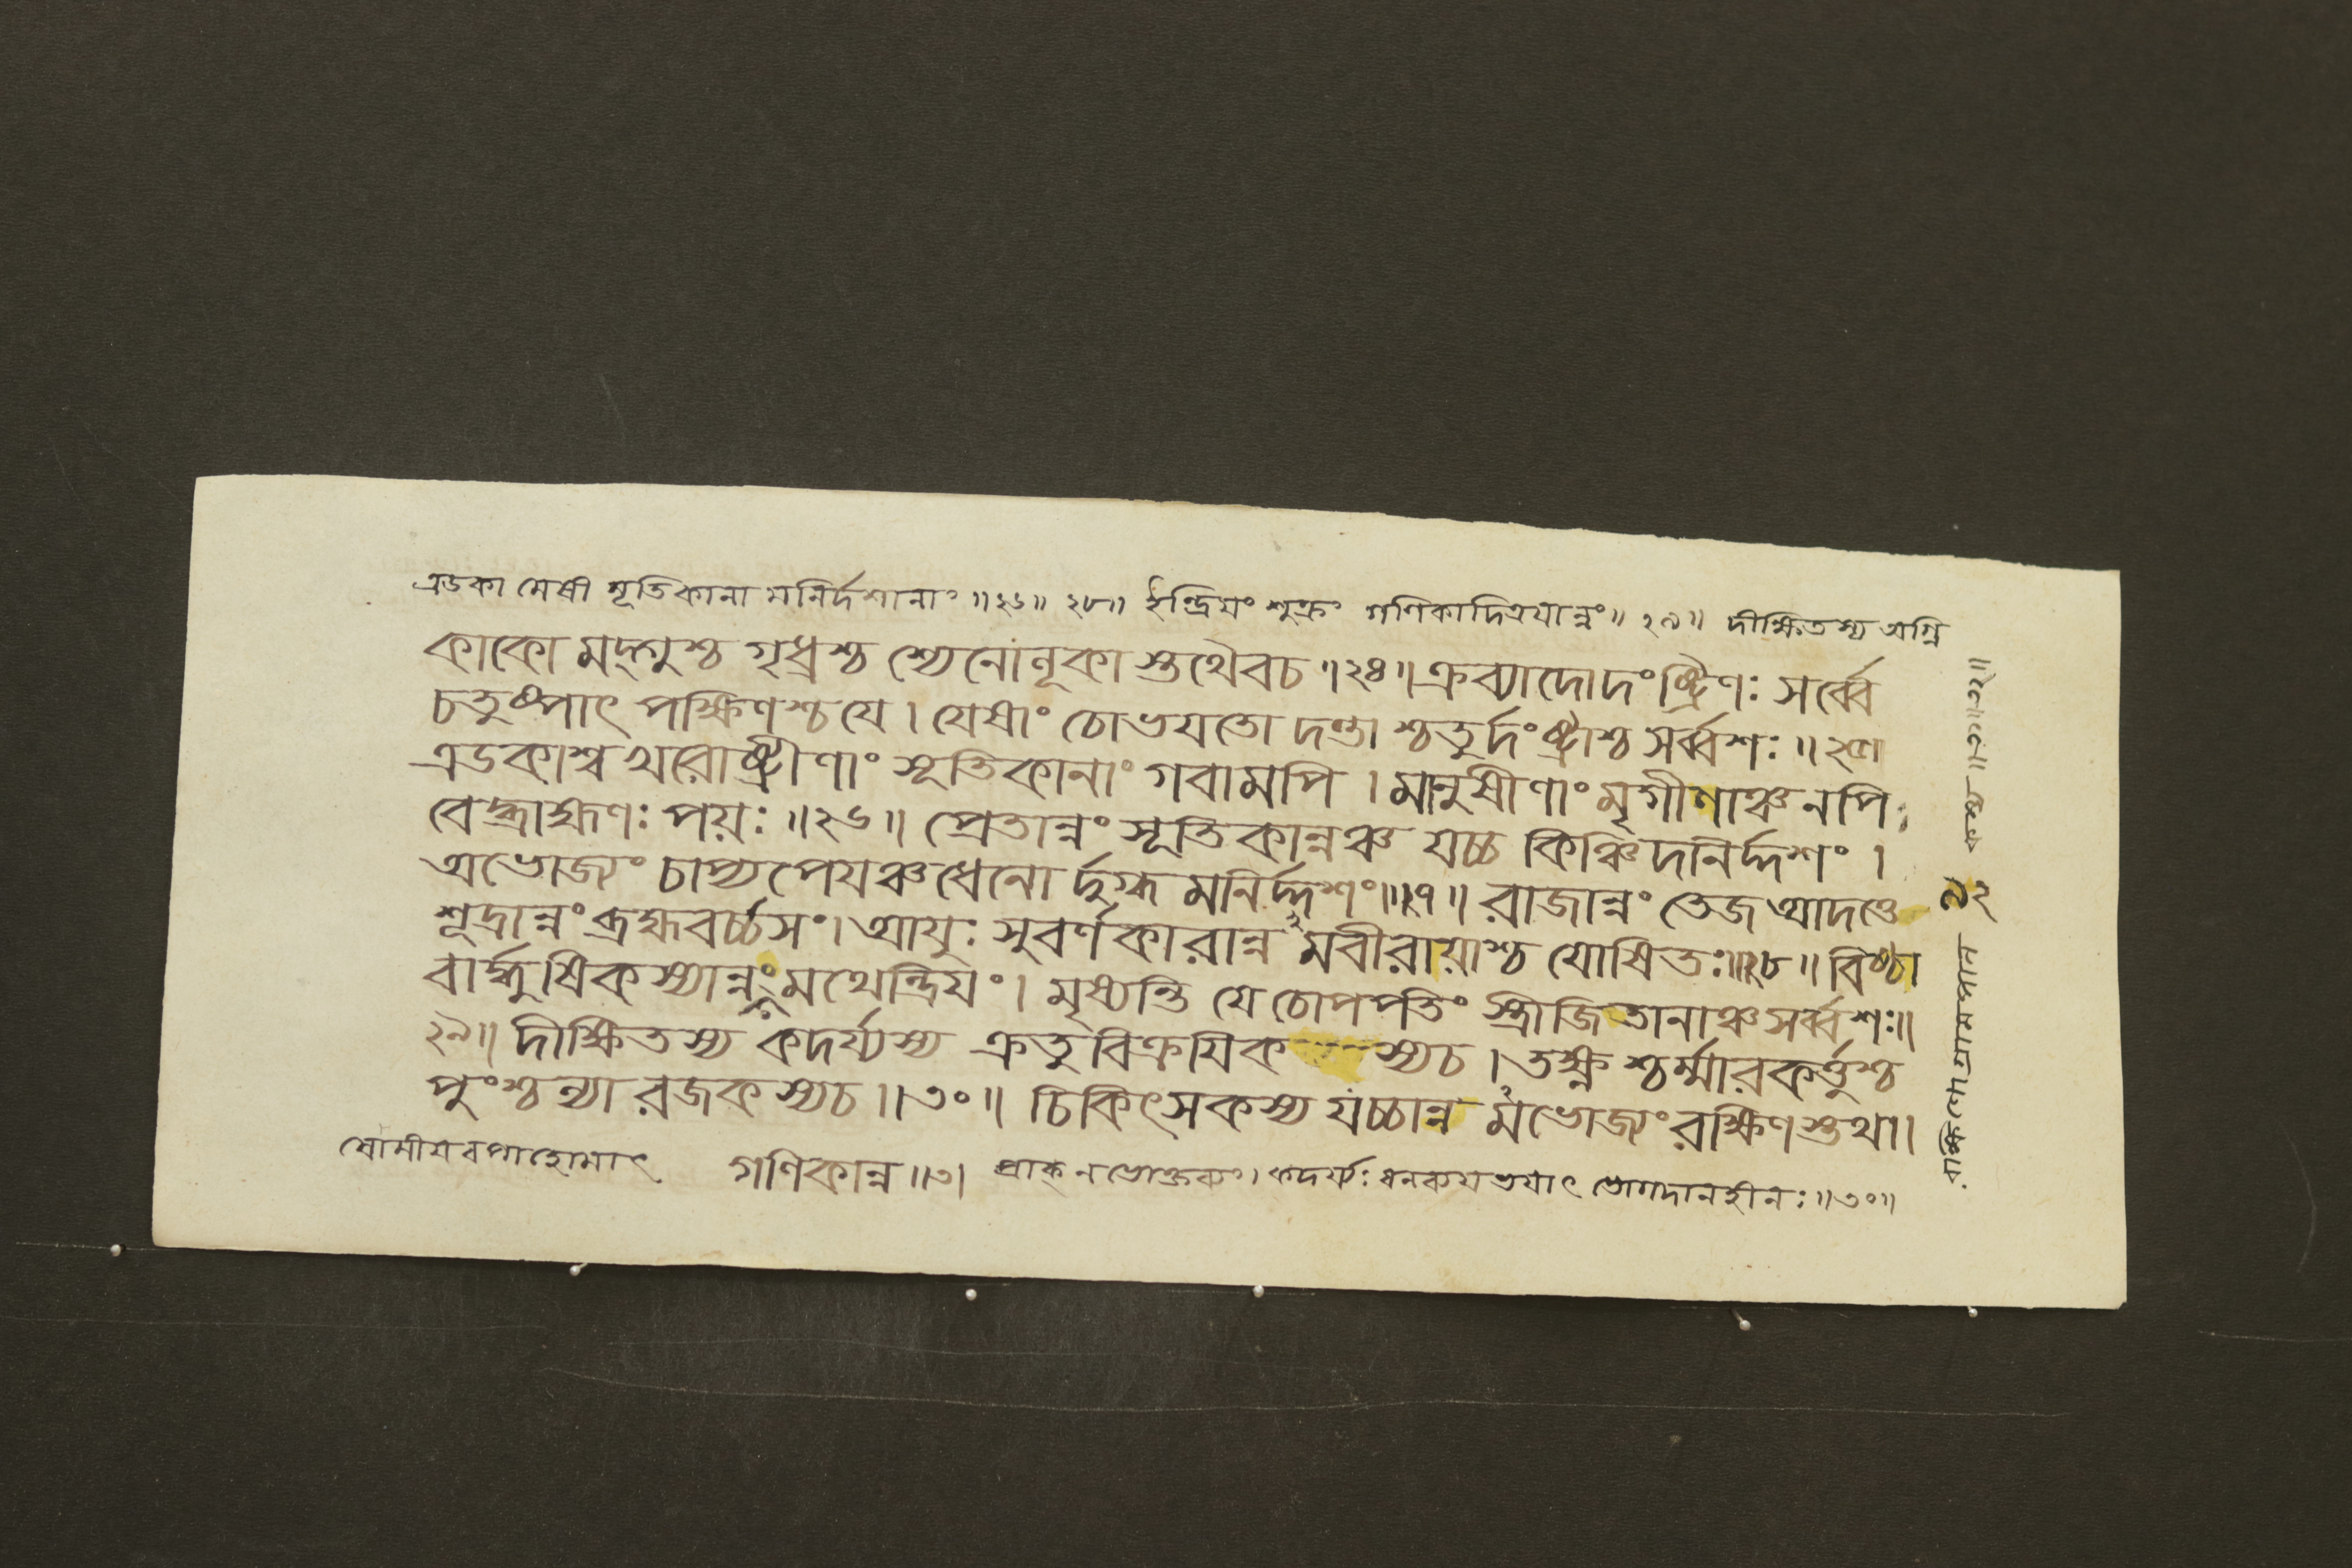 এডকা মেষী সূতিকানা মনির্দশানাং ॥২৬॥ ২৮॥ ইন্দ্রিয়ং শুক্রং গণিকাদিত্রয়ান্নং॥ ২৯॥ দীক্ষিতস্য অগ্নি
কাকো মদ্গুশ্চ গৃধ্রশ্চ শ্যেনো নূকা স্তথৈবচ॥২৪॥ক্রব্যাদোদংষ্ট্রিণঃ সর্ব্বে
চতুষ্পাৎ পক্ষিণশ্চযে। যেষাং চোভয়তো দন্তা শ্চতুর্দংষ্ট্রাশ্চ সর্ব্বশঃ॥২৫॥
এডকাশ্ব খরোষ্ট্রীণাং সূতিকানাং গবামপি। মানুষীণাং মৃগীনাঞ্চ নপি
বেদ্ব্রাহ্মণঃ পয়ঃ॥২৬॥ প্রেতান্নং সূতিকান্নঞ্চ যচ্চ কিঞ্চিদনির্দ্দশং।
অভোজ্যং চাপ্যপেয়ঞ্চধেনো র্দুগ্ধ মনির্দ্দশং॥২৭॥ রাজান্নং তেজ আদত্তে
শূদ্রান্নং ব্রহ্মবর্চ্চসং। আয়ুঃ সুবর্ণকারান্ন মবীরায়াশ্চ যোষিতঃ॥২৮॥ বিষ্ঠা
বার্দ্ধুষিকস্যান্নং মথেন্দ্রিয়ং। মৃষ্যন্তি যে চোপপতিং স্ত্রীজিতানাঞ্চসর্ব্বশঃ॥
২৯॥ দীক্ষিতস্য কদর্য্যস্য ক্রতুবিক্রয়িক স্যচ। তক্ষ্ণ শ্চর্ম্মারকর্ত্তুশ্চ
পুংশ্চল্যা রজকস্যচ॥৩০॥ চিকিৎসকস্য যচ্চান্ন মভোজ্যং রক্ষিণস্তথা।
ষোমীয়বপাহোমাৎ গণিকান্ন॥৩। প্রাক্ নভোক্তব্যং। কদর্য্যঃ ধনক্ষয়ভয়াৎ ভোগদানহীনঃ॥৩০॥
৯২